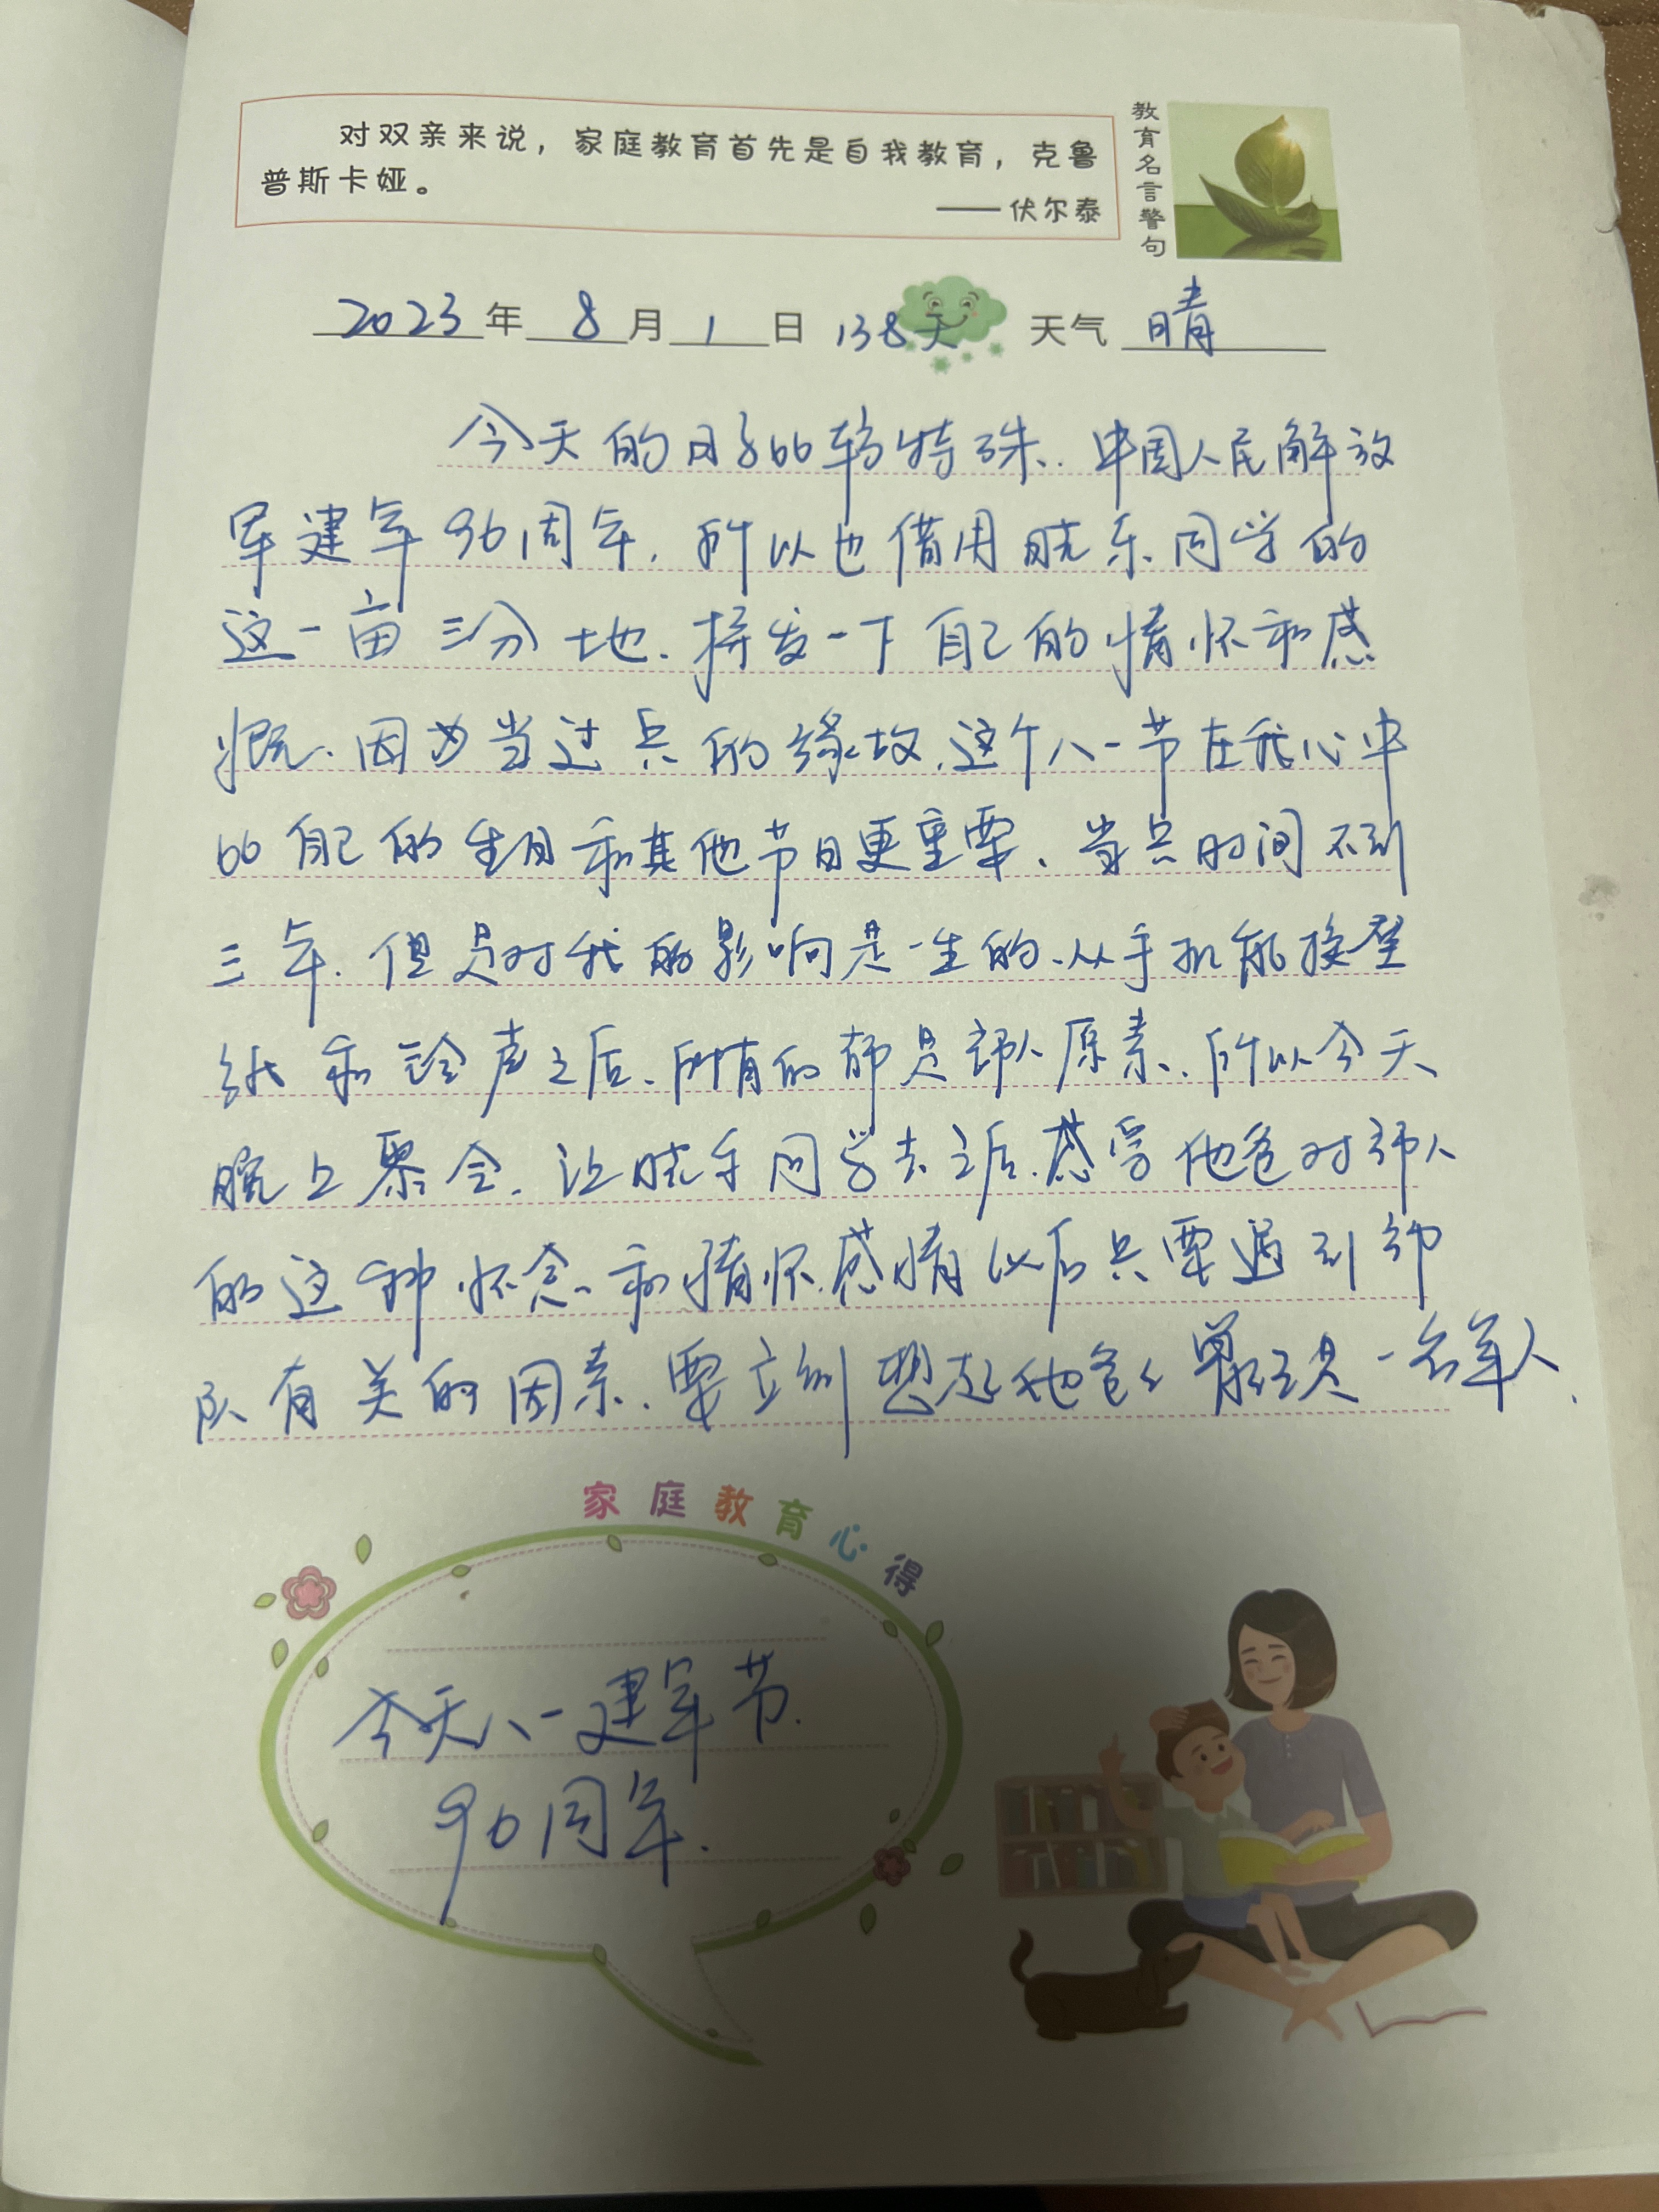 对双亲来说，家庭教育首先是自我教育，克鲁
普斯卡娅。
——伏尔泰
教育名言警句
2023年8月1日 138天 天气 晴
今天的日子比较特殊．中国人民解放
军建军96周年．所以也借用晓东同学的
这一亩三分地．抒发一下自己的情怀和感
慨．因为当过兵的缘故．这个八一节在我心中
比自己的生日和其他节日更重要．当兵时间不到
三年．但是对我的影响是一生的．从手机能换壁
纸和铃声之后．所有的都是部队原素．所以今天
晚上聚会．让晓东同学去之后．感受他爸对部队
的这种怀念和情怀．感情以后只要遇到部
队有关的因素．要立刻想起他爸爸曾经是一名军人．
家庭教育心得
今天八一建军节．
96周年．